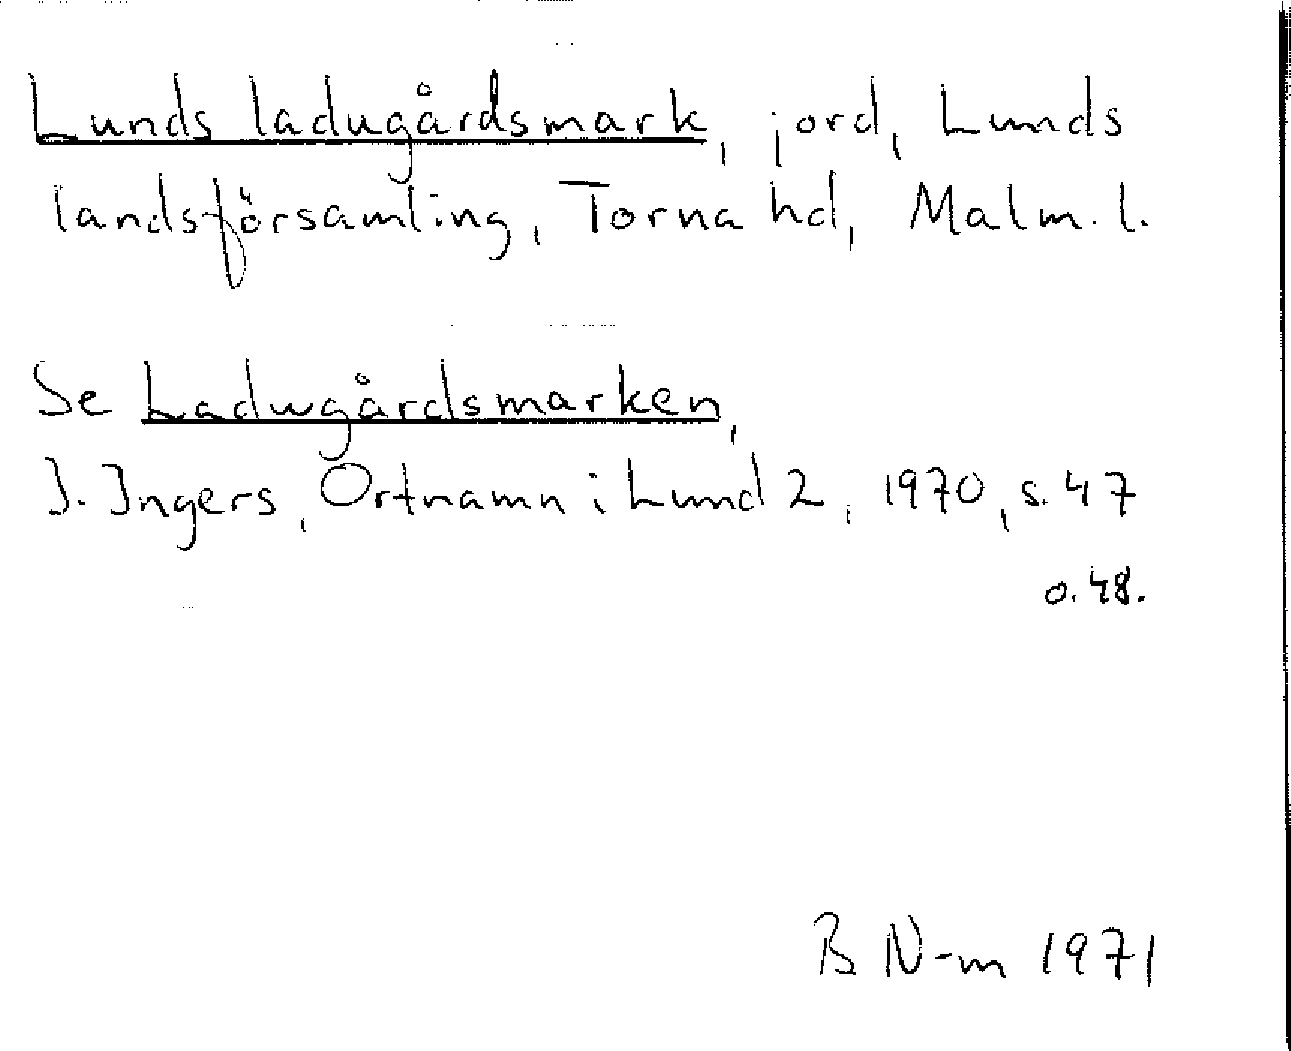 Lunds ladugårdsmark, jord, Lunds
landsförsamling, Torna hd, Malm. l.
Se Ladugårdsmarken,
I. Ingers, Ortnamn i Lund 2, 1970, s. 47
o. 48.
B N-m 1971